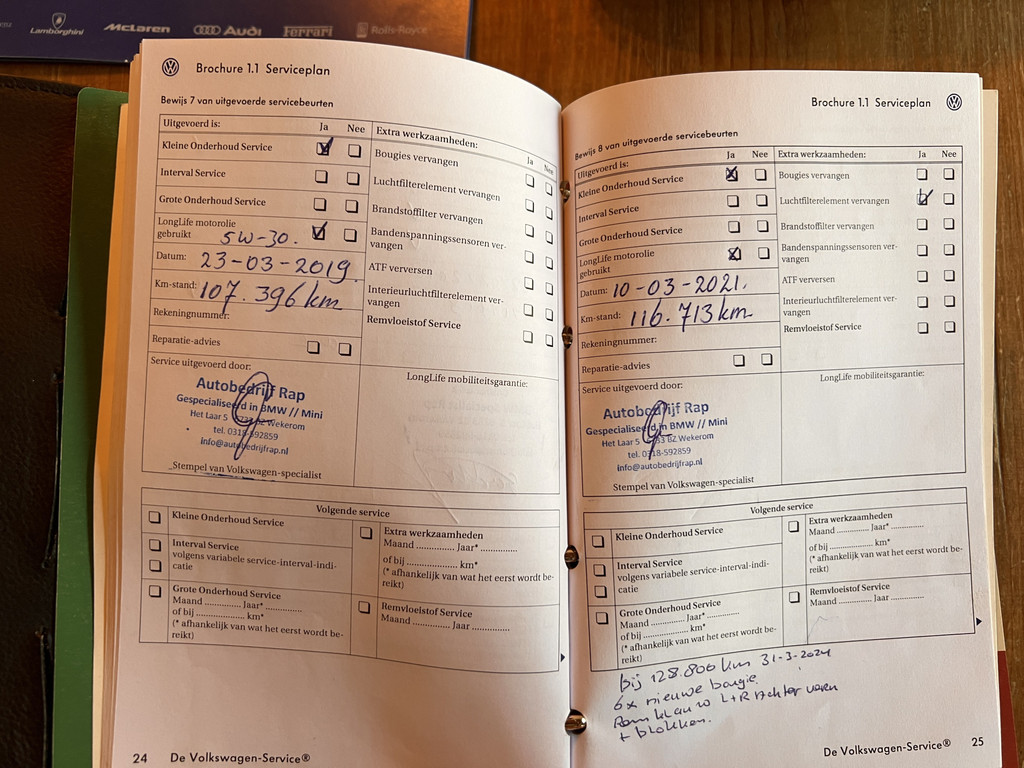 Lamborghini McLaren Audi Ferrari Rolls-Royce
Brochure 1.1 Serviceplan
Bewijs 7 van uitgevoerde servicebeurten
Uitgevoerd is: Ja Nee
Kleine Onderhoud Service
Interval Service
Grote Onderhoud Service
LongLife motorolie
gebruikt 5W-30.
Datum: 23-03-2019.
Km-stand: 107.396 km
Rekeningnummer:
Reparatie-advies
Service uitgevoerd door:
Autobedrijf Rap
Gespecialiseerd in BMW // Mini
Het Laar 5 6733 BZ Wekerom
tel. 0318-592859
info@autobedrijfrap.nl
Stempel van Volkswagen-specialist
Extra werkzaamheden: Ja Nee
Bougies vervangen
Luchtfilterelement vervangen
Brandstoffilter vervangen
Bandenspanningssensoren ver-
vangen
ATF verversen
Interieurluchtfilterelement ver-
vangen
Remvloeistof Service
LongLife mobiliteitsgarantie:
Volgende service
Kleine Onderhoud Service
Interval Service
volgens variabele service-interval-indi-
catie
Grote Onderhoud Service
Maand .............. Jaar* ..............
of bij .................... km*
(* afhankelijk van wat het eerst wordt be-
reikt)
Extra werkzaamheden
Maand .............. Jaar* ..............
of bij .................... km*
(* afhankelijk van wat het eerst wordt be-
reikt)
Remvloeistof Service
Maand .............. Jaar ..............
24 De Volkswagen-Service®
Brochure 1.1 Serviceplan
Bewijs 8 van uitgevoerde servicebeurten
Uitgevoerd is: Ja Nee
Kleine Onderhoud Service
Interval Service
Grote Onderhoud Service
LongLife motorolie
gebruikt
Datum: 10-03-2021.
Km-stand: 116.713 km
Rekeningnummer:
Reparatie-advies
Service uitgevoerd door:
Autobedrijf Rap
Gespecialiseerd in BMW // Mini
Het Laar 5 6733 BZ Wekerom
tel. 0318-592859
info@autobedrijfrap.nl
Stempel van Volkswagen-specialist
Extra werkzaamheden: Ja Nee
Bougies vervangen
Luchtfilterelement vervangen
Brandstoffilter vervangen
Bandenspanningssensoren ver-
vangen
ATF verversen
Interieurluchtfilterelement ver-
vangen
Remvloeistof Service
LongLife mobiliteitsgarantie:
Volgende service
Kleine Onderhoud Service
Interval Service
volgens variabele service-interval-indi-
catie
Grote Onderhoud Service
Maand .............. Jaar* ..............
of bij .................... km*
(* afhankelijk van wat het eerst wordt be-
reikt)
Extra werkzaamheden
Maand .............. Jaar* ..............
of bij .................... km*
(* afhankelijk van wat het eerst wordt be-
reikt)
Remvloeistof Service
Maand .............. Jaar ..............
bij 128.800 km 31-3-2024
6x nieuwe bougie
L+R achter veren
+ blokken.
De Volkswagen-Service® 25